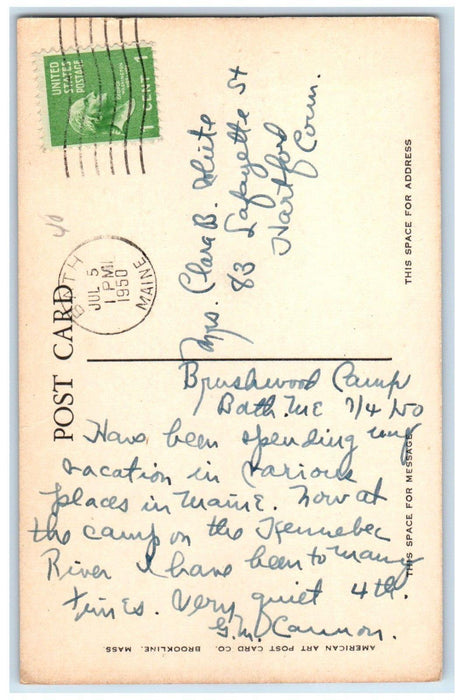 UNITED
STATES
POSTAGE
1 CENT 1
BATH
JUL 5
1 PM
1950
MAINE
40
POST CARD
THIS SPACE FOR ADDRESS
Mrs. Clara B. White
83 Lafayette St
Hartford
Conn.
Brushwood Camp
Bath. ME 7/4/50
Have been spending my
vacation in various
places in Maine. Now at
the camp on the Kennebec
River I have been to many
times. Very quiet 4th.
G.M. Cannon.
THIS SPACE FOR MESSAGE
AMERICAN ART POST CARD CO., BROOKLINE, MASS.